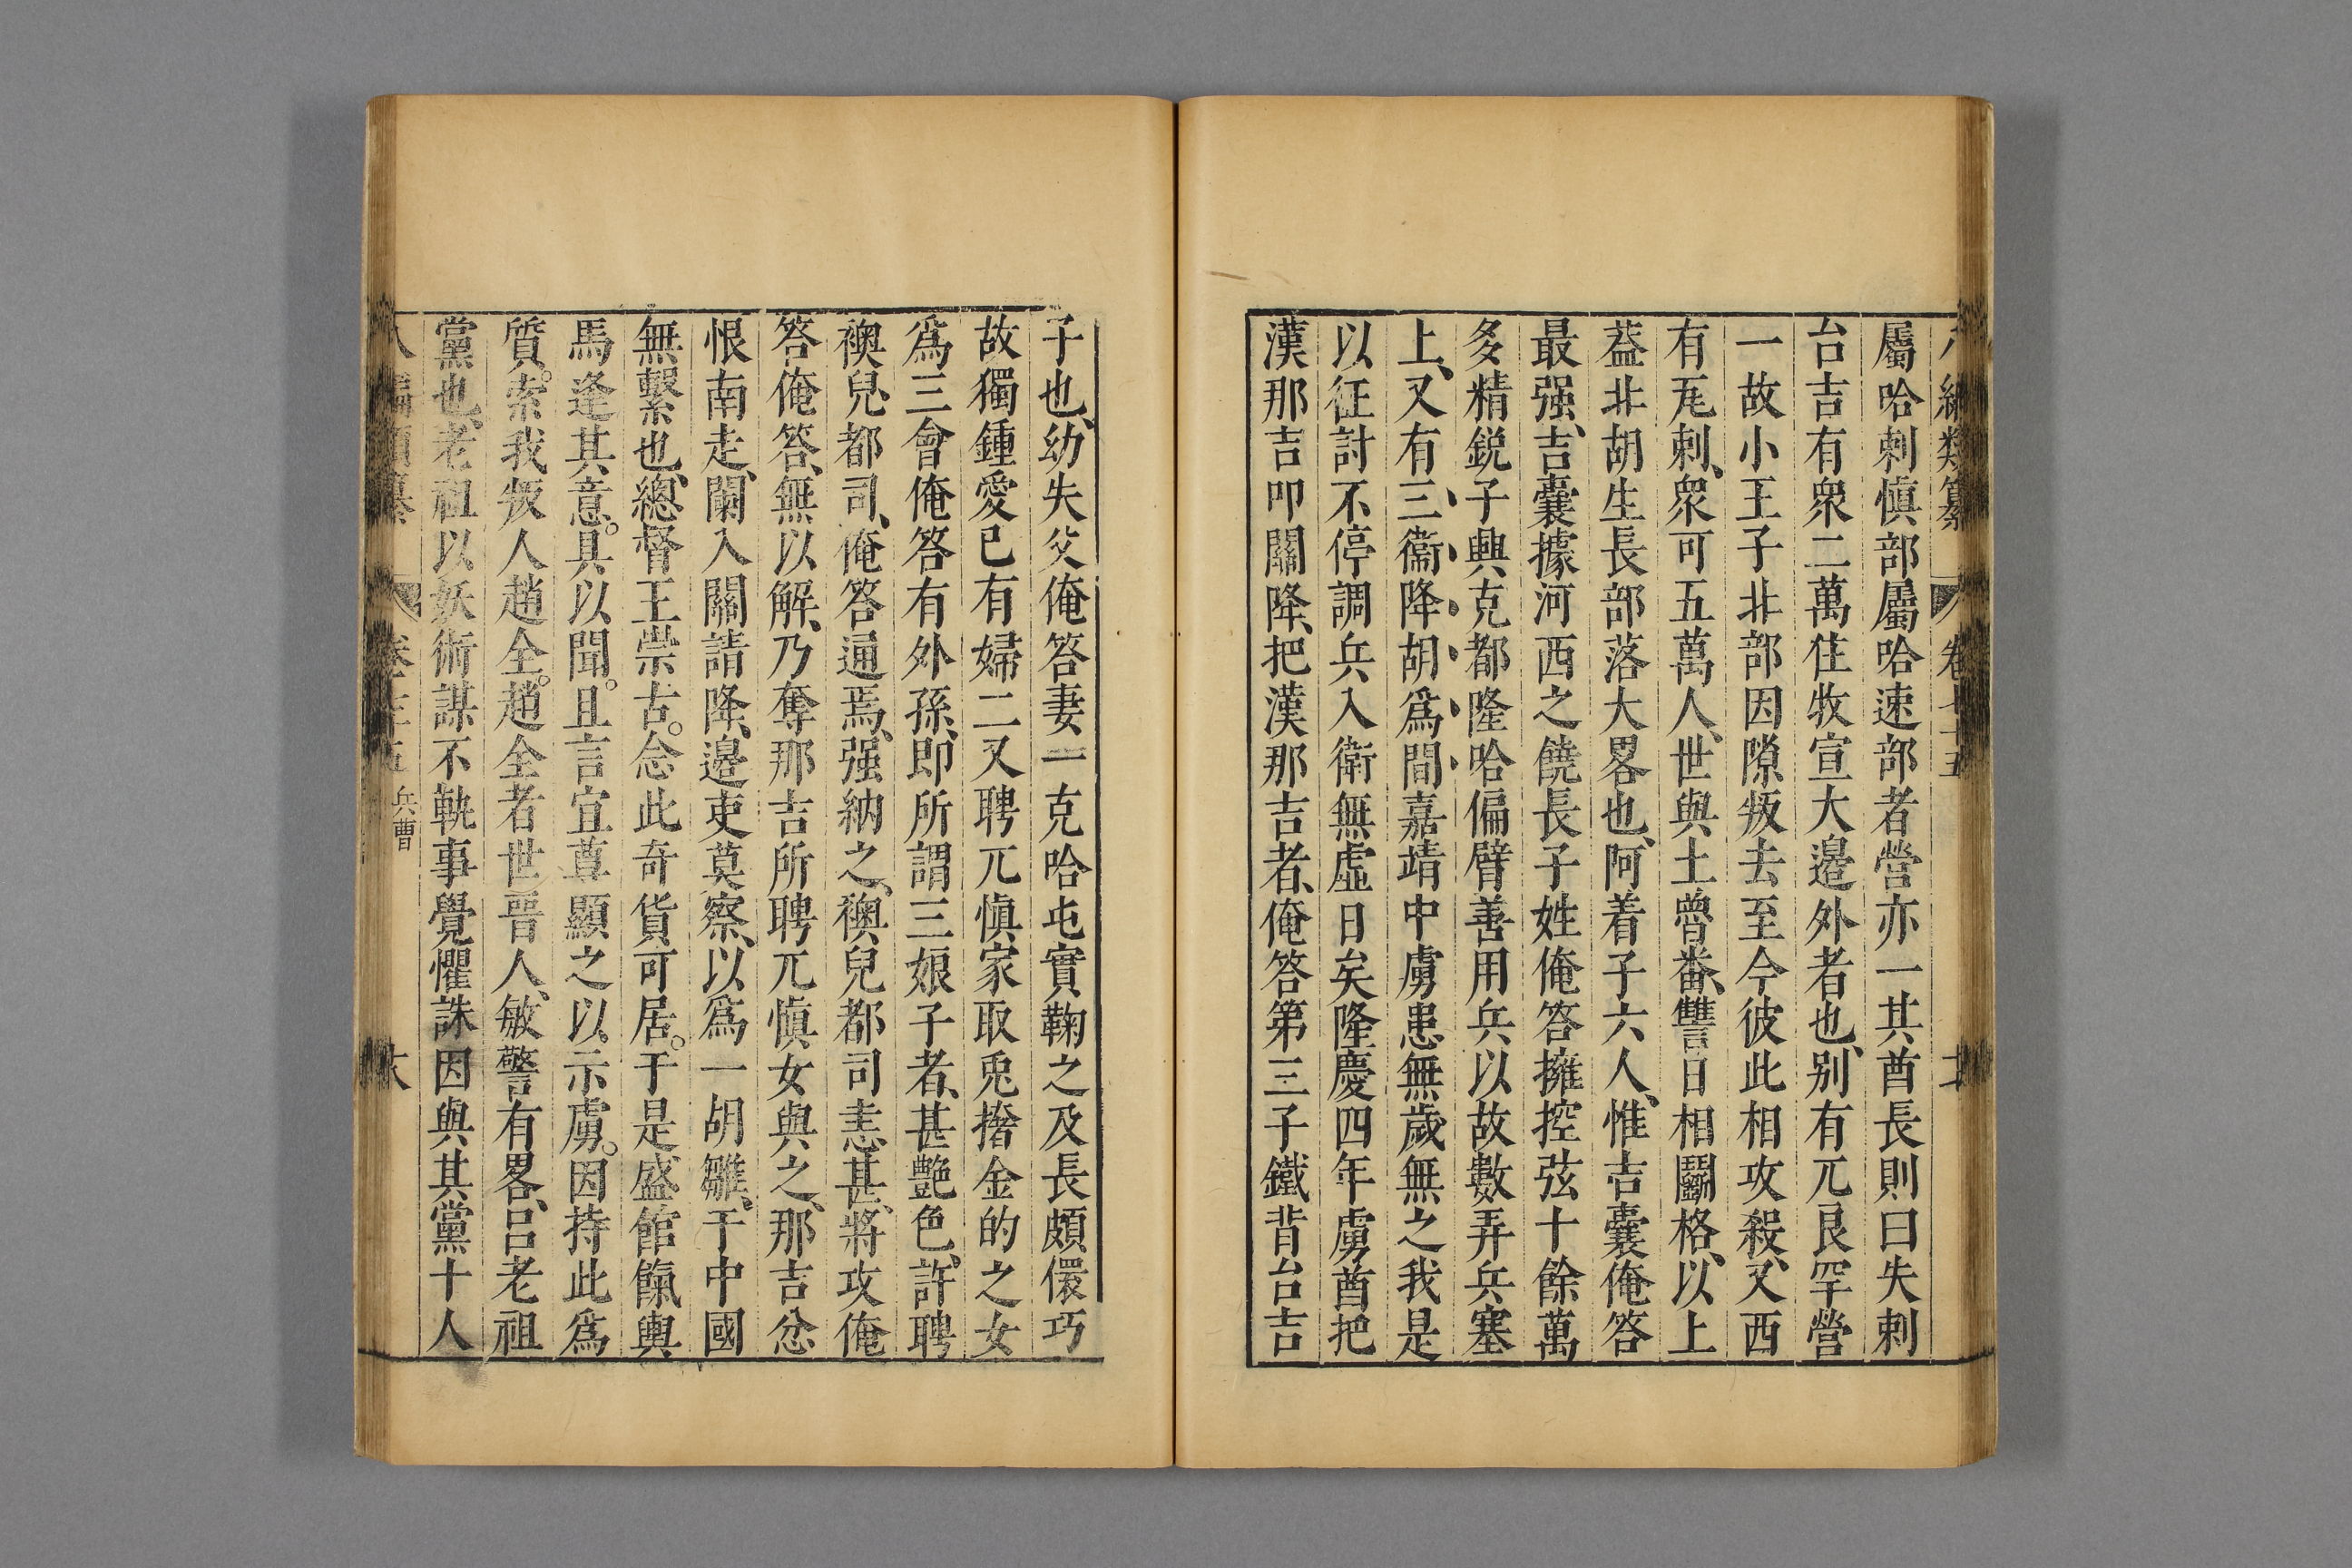 屬哈剌慎部屬哈速部者營亦一其酋長則曰失剌
台吉有衆二萬住牧宣大邊外者也、别有兀良罕營
一故小王子北部因隙叛去至今彼此相攻殺、又西
有瓦剌、衆可五萬人、世與土魯番、讐日相鬬格、以上
葢北胡生長部落大畧也、阿着子六人、惟吉囊俺答
最强、吉囊據河西之饒長子姓俺答擁控弦十餘萬
多精鋭子興克都隆哈偏臂善用兵以故數弄兵塞
上、又有三衞降胡爲間嘉靖中虜患無歲無之我是
以征討不停調兵入衛無虛日矣隆慶四年虜酋把
漢那吉叩關降、把漢那吉者、俺答第三子鐵背台吉
子也、幼失父俺答妻一克哈屯實鞠之及長頗儇巧
故獨鍾愛已有婦二又聘兀慎家取兎撦金的之女
爲三會俺答有外孫、即所謂三娘子者、甚艶色、許聘
襖兒都司、俺答通焉、强納之、襖兒都司恚甚、將攻俺
答俺答、無以解、乃奪那吉所聘兀慎女與之、那吉忿
恨南走、闌入關請降、邊吏莫察、以爲一胡雛、于中國
無繫也、總督王崇古。念此奇貨可居。于是盛館餼輿
馬逢其意。具以聞。且言宜尊顯之以示虜。因持此爲
質。索我叛人趙全。趙全者世晉人、敏警有畧、吕老祖
黨也、老祖以妖術謀不軌事覺懼誅因與其黨十人
兵曹